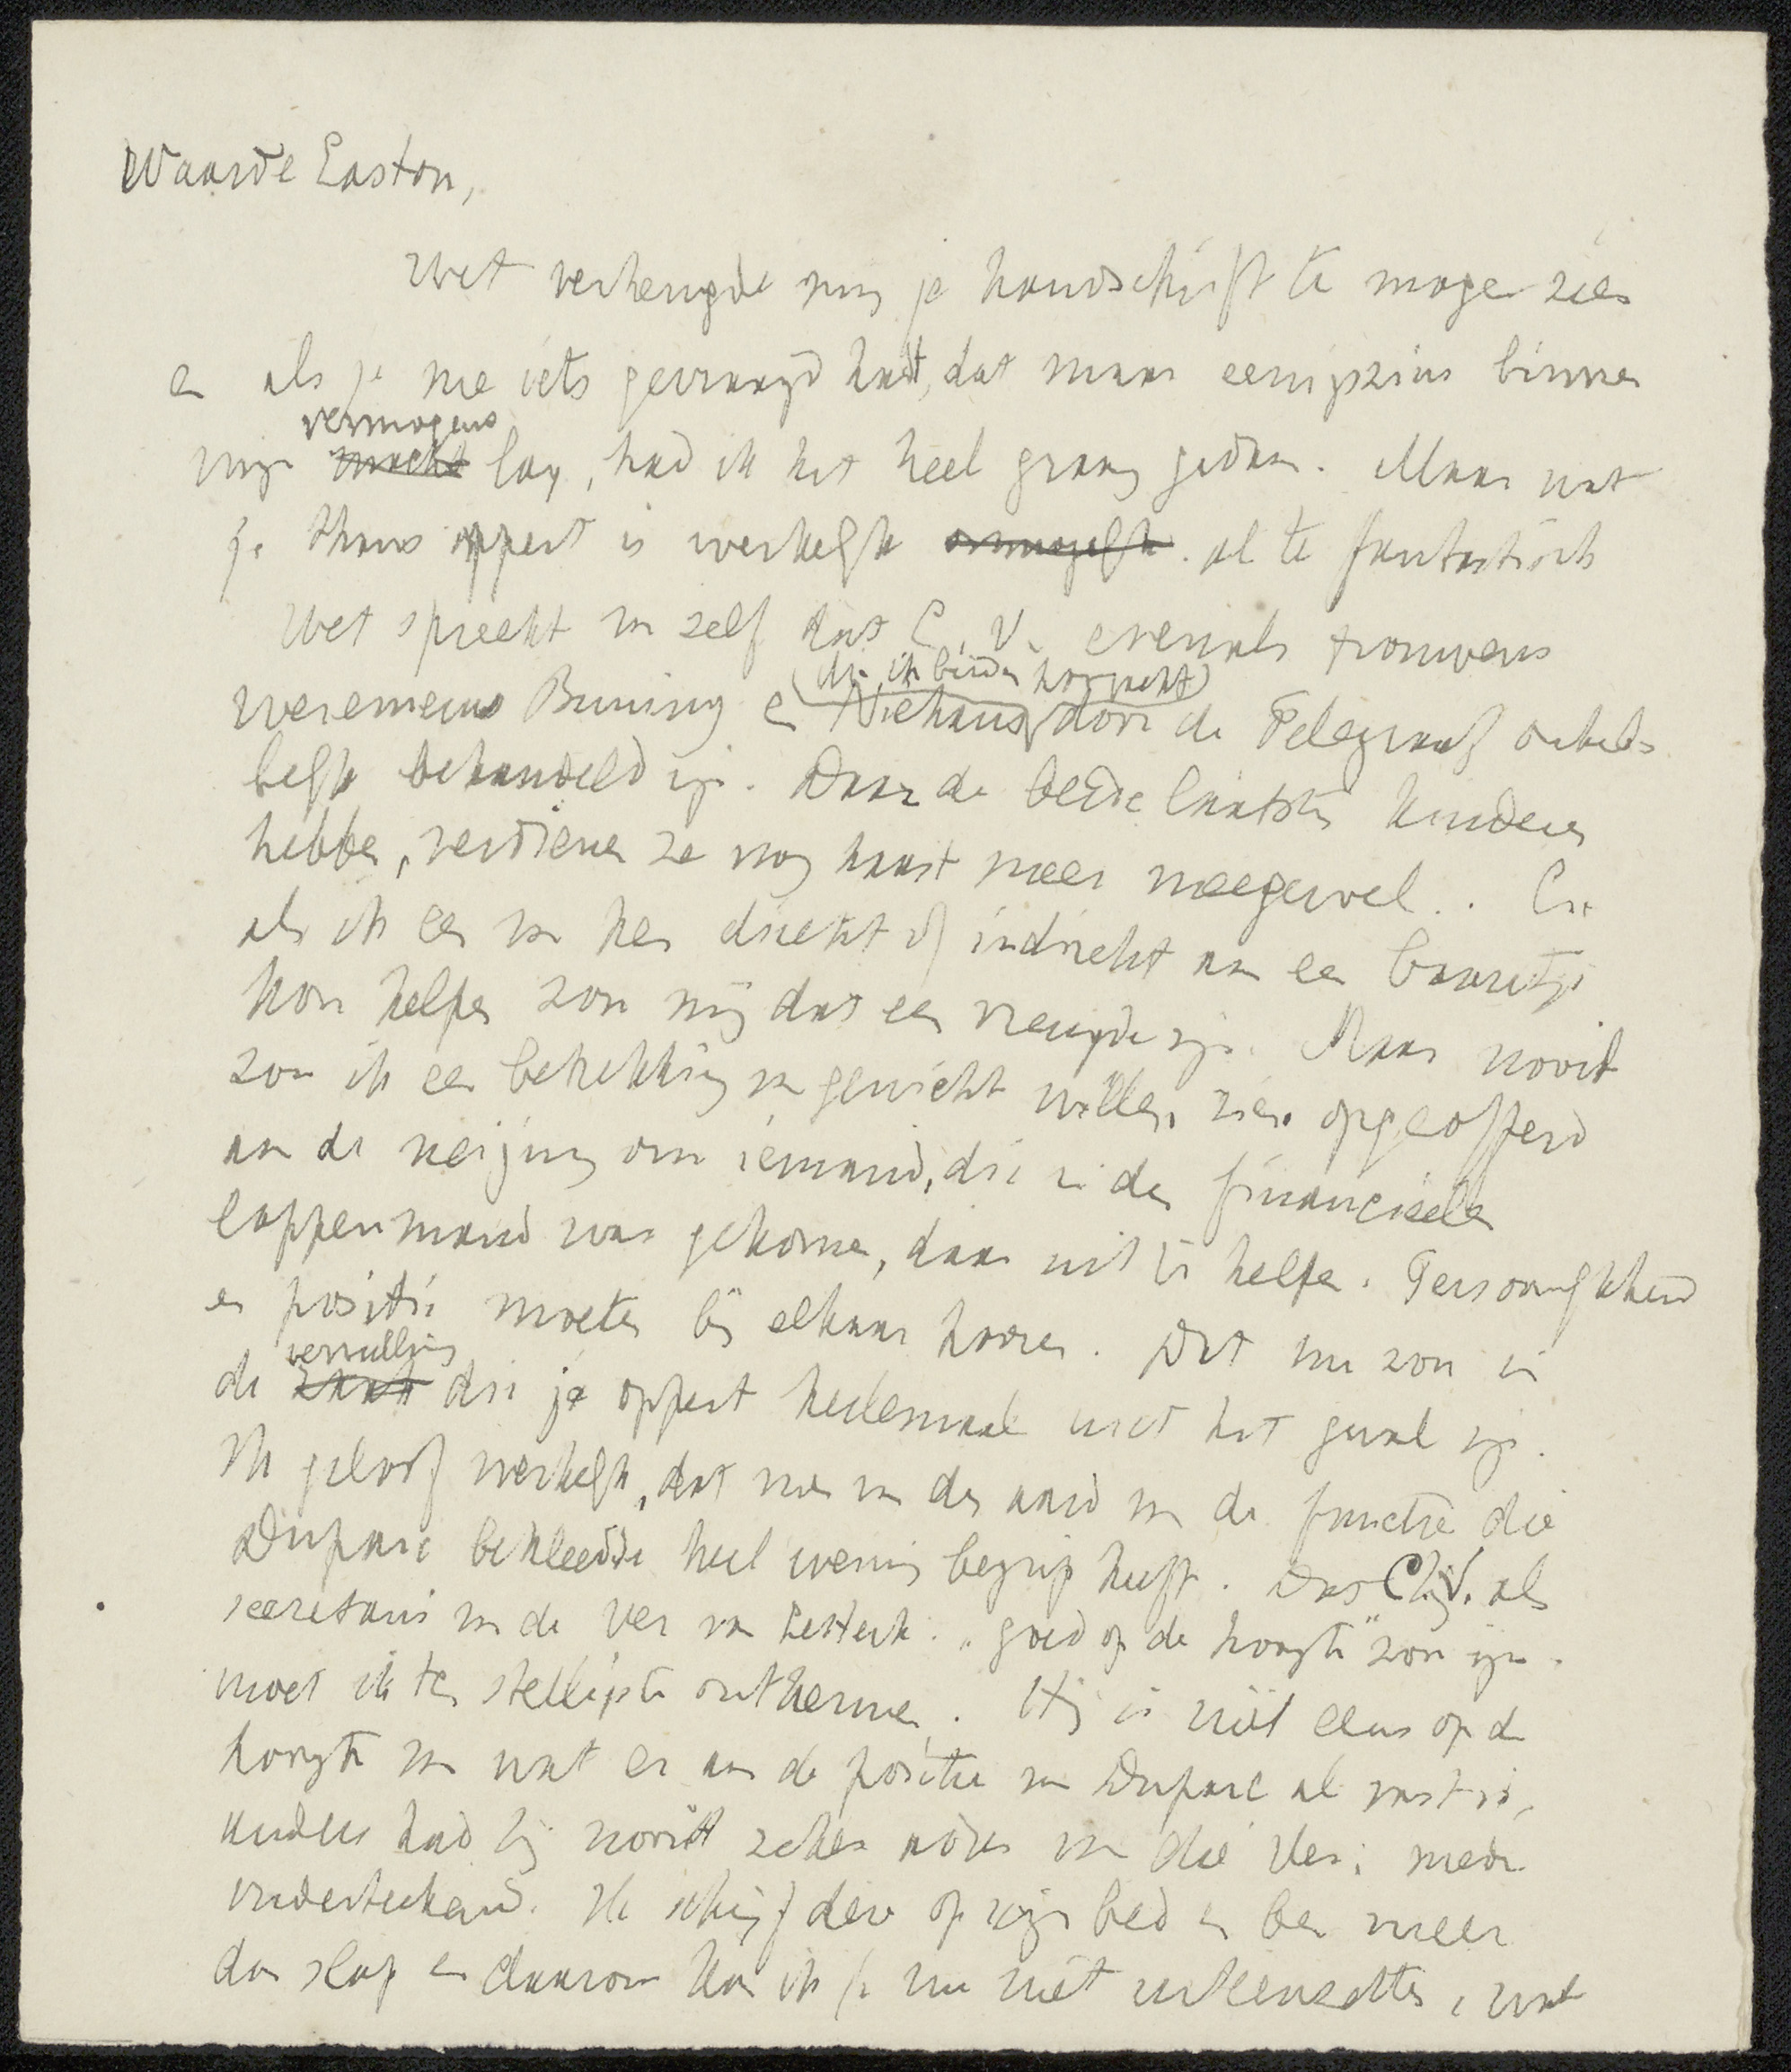 Waarde Easton,
Het verheugde mij je handschrift te mogen zien
en als je me iets gevraagd hadt, dat maar eenigszins binnen
vermogens
mijn macht lag, had ik het heel graag gedaan. Maar wat
je thans oppert is werkelijk onmogelijk. al te fantastisch
Het spreekt van zelf dat C. V. evenals trouwens
(die ik beiden hoogacht)
Werumeus Buning en Niehaus door de Telegraaf
behandeld zijn. Daar de beide laatsten kinderen
hebben, verdienen ze nog haast meer meegevoel. En
als ik een van hen direkt of indirekt aan een baantje
kon helpen zou mij dat een vreugde zijn. Maar nooit
zou ik een betrekking van gewicht willen zien opgeofferd
aan de neiging om iemand, die in den financieelen
lappenmand was gekomen, daar uit te helpen. Persoonlijkheid
en positie moeten bij elkaar hooren. Dit nu zou in
vervulling
de zaak die je oppert heelemaal niet het geval zijn.
Ik geloof werkelijk, dat men van den aard van de functie die
Duparc bekleedde heel weinig begrip heeft. Dat C.V. als
secretaris van de Ver van "goed op de hoogte" zou zijn.
moet ik ten stelligste ontkennen. Hij is niet eens op de
hoogte van wat er aan de positie van Duparc al vast is,
anders had hij nooit zeker adres van die Ver; mede
onderteekend. Ik schrijf dezen op mijn bed en ben meer
dan slap en daarom kan ik je nu niet uiteenzetten, wat